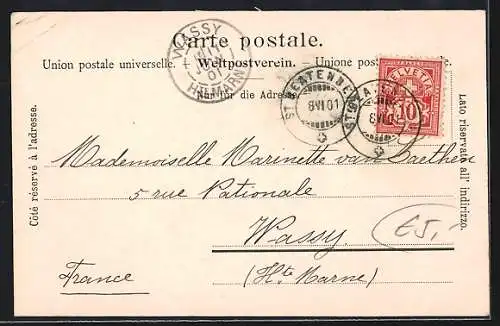 Carte postale.
Union postale universelle. — Weltpostverein. — Unione postale
Nur für die Adresse
WASSY
01
Hte MARNE
ST. BEATENBE
8 VI 01
ST.
8 VI 0
HELVETIA
10
Côté réservé à l'adresse.
Lato riservato all' indirizzo.
Mademoiselle Marinette van
5 rue
Wassy
(Hte Marne)
France
E5,-